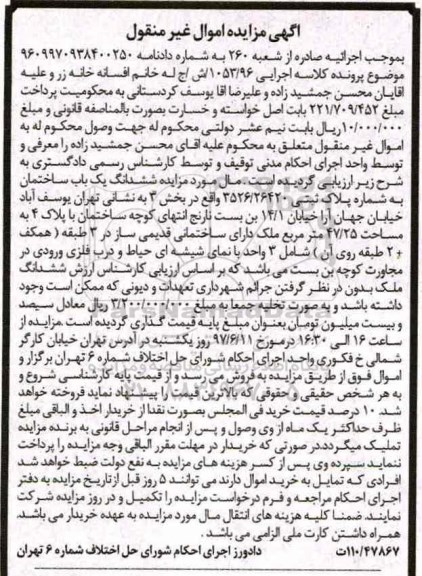 آگهی مزایده اموال غیر منقول
بموجب اجرائیه صادره از شعبه ۲۶۰ به شماره دادنامه ۹۶۰۹۹۷۰۹۳۸۴۰۰۲۵۰
موضوع پرونده کلاسه اجرایی ۱۰۵۳/۹۶/ش /ج له خانم افسانه خانه زر و علیه
آقایان محسن جمشید زاده و علیرضا آقا یوسف کردستانی به محکومیت پرداخت
مبلغ ۲۲۱/۷۰۹/۴۵۲ بابت اصل خواسته و خسارت بصورت بالمناصفه قانونی و مبلغ
۱۰/۰۰۰/۰۰۰ ریال بابت نیم عشر دولتی محکوم له جهت وصول محکوم له به
اموال غیر منقول متعلق به محکوم علیه آقای محسن جمشید زاده را معرفی و
توسط واحد اجرای احکام مدنی توقیف و توسط کارشناس رسمی دادگستری به
شرح زیر ارزیابی گردیده است. مال مورد مزایده ششدانگ یک باب ساختمان
به شماره پلاک ثبتی ۳۵۲۶/۲۶۴۲ واقع در بخش ۳ به نشانی تهران یوسف آباد
خیابان جهان آرا خیابان ۱۴/۱ بن بست نارنج انتهای کوچه ساختمان با پلاک ۴ به
مساحت ۴۷/۲۵ متر مربع ملک دارای ساختمانی قدیمی ساز در ۳ طبقه ( همکف
و ۲ طبقه روی آن ) شامل ۳ واحد با نمای شیشه ای حیاط و درب فلزی ورودی در
مجاورت کوچه بن بست می باشد که بر اساس ارزیابی کارشناس ارزش ششدانگ
ملک بدون در نظر گرفتن جرائم شهرداری تعهدات و دیونی که ممکن است وجود
داشته باشد و به صورت تخلیه جمعا به مبلغ ۳/۲۰۰/۰۰۰/۰۰۰ ریال معادل سیصد
و بیست میلیون تومان بعنوان مبلغ پایه قیمت گذاری گردیده است. مزایده از
ساعت ۱۶ الی ۱۶:۳۰ در مورخ ۹۷/۶/۱۱ روز یکشنبه در آدرس تهران خیابان کارگر
شمالی خ فکوری واحد اجرای احکام شورای حل اختلاف شماره ۶ تهران برگزار و
اموال فوق از طریق مزایده به فروش می رسد و از قیمت پایه کارشناسی شروع و
به هر شخص حقیقی و حقوقی که بالاترین قیمت را پیشنهاد نماید فروخته خواهد
شد. ۱۰ درصد قیمت خرید فی المجلس بصورت نقدا از خریدار اخذ و الباقی مبلغ
ظرف حداکثر یک ماه از وی وصول و پس از انجام مراحل قانونی به برنده مزایده
تملیک میگردد.در صورتی که خریدار در مهلت مقرر الباقی وجه مزایده را پرداخت
ننماید سپرده وی پس از کسر هزینه های مزایده به نفع دولت ضبط خواهد شد
افرادی که تمایل به خرید اموال دارند می توانند ۵ روز قبل از تاریخ مزایده به دفتر
اجرای احکام مراجعه و فرم درخواست مزایده را تکمیل و در روز مزایده شرکت
نمایند. ضمنا کلیه هزینه های انتقال مال مورد مزایده به عهده خریدار می باشد.
همراه داشتن کارت ملی الزامی می باشد .
۱۱۰/۴۷۸۶۷ت دادورز اجرای احکام شورای حل اختلاف شماره ۶ تهران